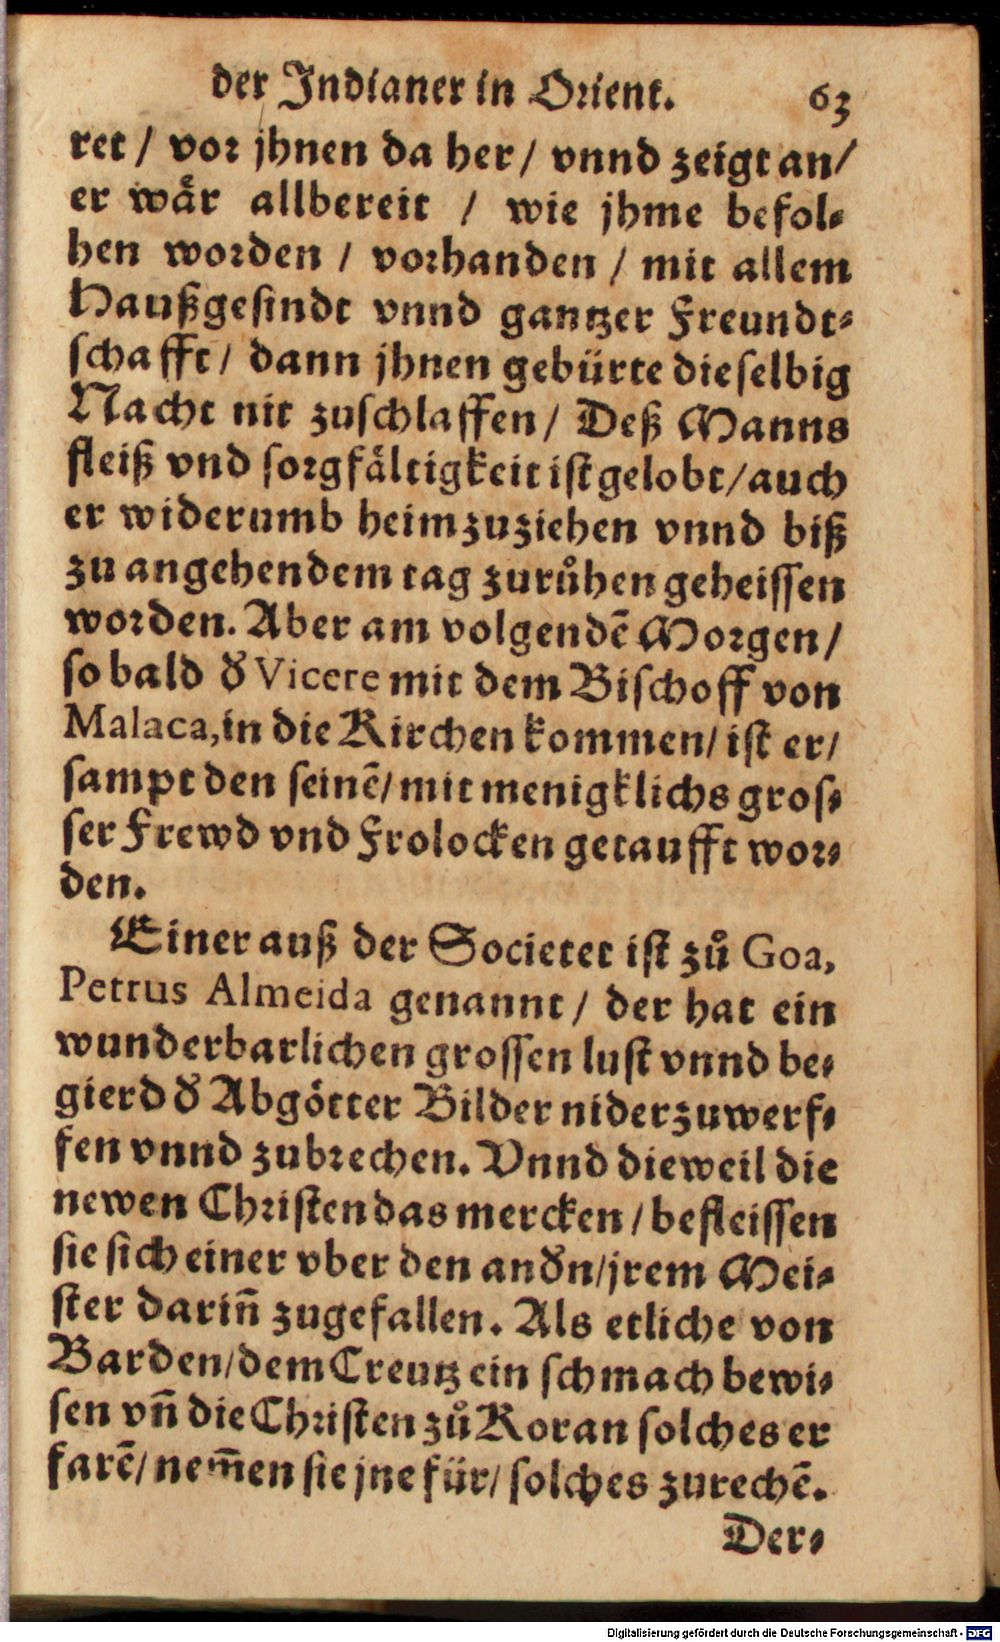 der Indianer in Orient. 63
ret / vor jhnen da her / vnnd zeigt an /
er wår allbereit / wie jhme befol⸗
hen worden / vorhanden / mit allem
Haußgesindt vnnd gantzer Freundt⸗
schafft / dann jhnen gebürte dieselbig
Nacht nit zuschlaffen / Deß Manns
fleiß vnd sorgfältigkeit ist gelobt / auch
er widerumb heimzuziehen vnnd biß
zu angehendem tag zurůhen geheissen
worden. Aber am volgendẽ Morgen /
so bald d̕ Vicere mit dem Bischoff von
Malaca, in die Kirchen kommen / ist er /
sampt den seinẽ / mit menigklichs gros⸗
ser Frewd vnd Frolocken getaufft wor⸗
den.
Einer auß der Societet ist zů Goa,
Petrus Almeida genannt / der hat ein
wunderbarlichen grossen lust vnnd be⸗
gierd d̕ Abgötter Bilder niderzuwerf⸗
fen vnnd zubrechen. Vnnd dieweil die
newen Christen das mercken / befleissen
sie sich einer vber den and̕n / jrem Mei⸗
ster dariñ zugefallen. Als etliche von
Barden / dem Creutz ein schmach bewi⸗
sen vñ die Christen zů Koran solches er
farẽ / nem̃en sie jne für / solches zurechẽ.
Der⸗
Digitalisierung gefördert durch die Deutsche Forschungsgemeinschaft - DFG